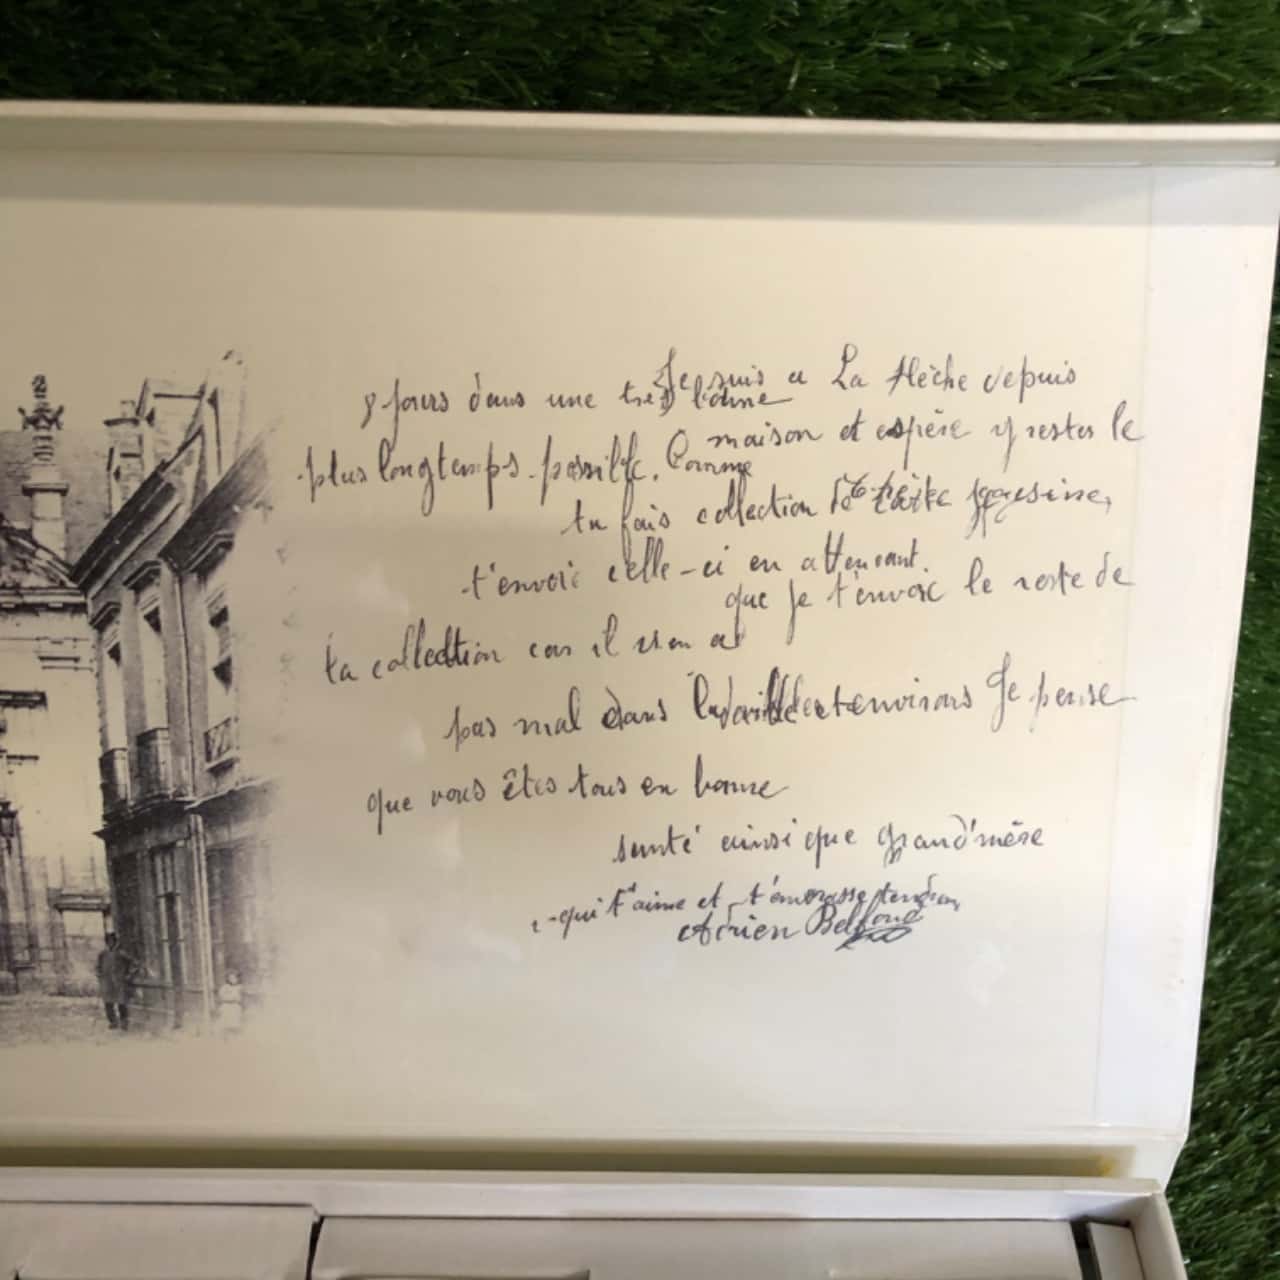 Je suis a La Flèche depuis
8 jours dans une très bonne
maison et espère y rester le
plus longtemps possible. Comme
tu fais collection de carte
t'envoie celle-ci en attendant
que je t'envoie le reste de
ta collection car il y en a
pas mal dans la ville et environs Je pense
que vous êtes tous en bonne
santé ainsi que grand'mère
qui t'aime et t'embrasse
Adrien